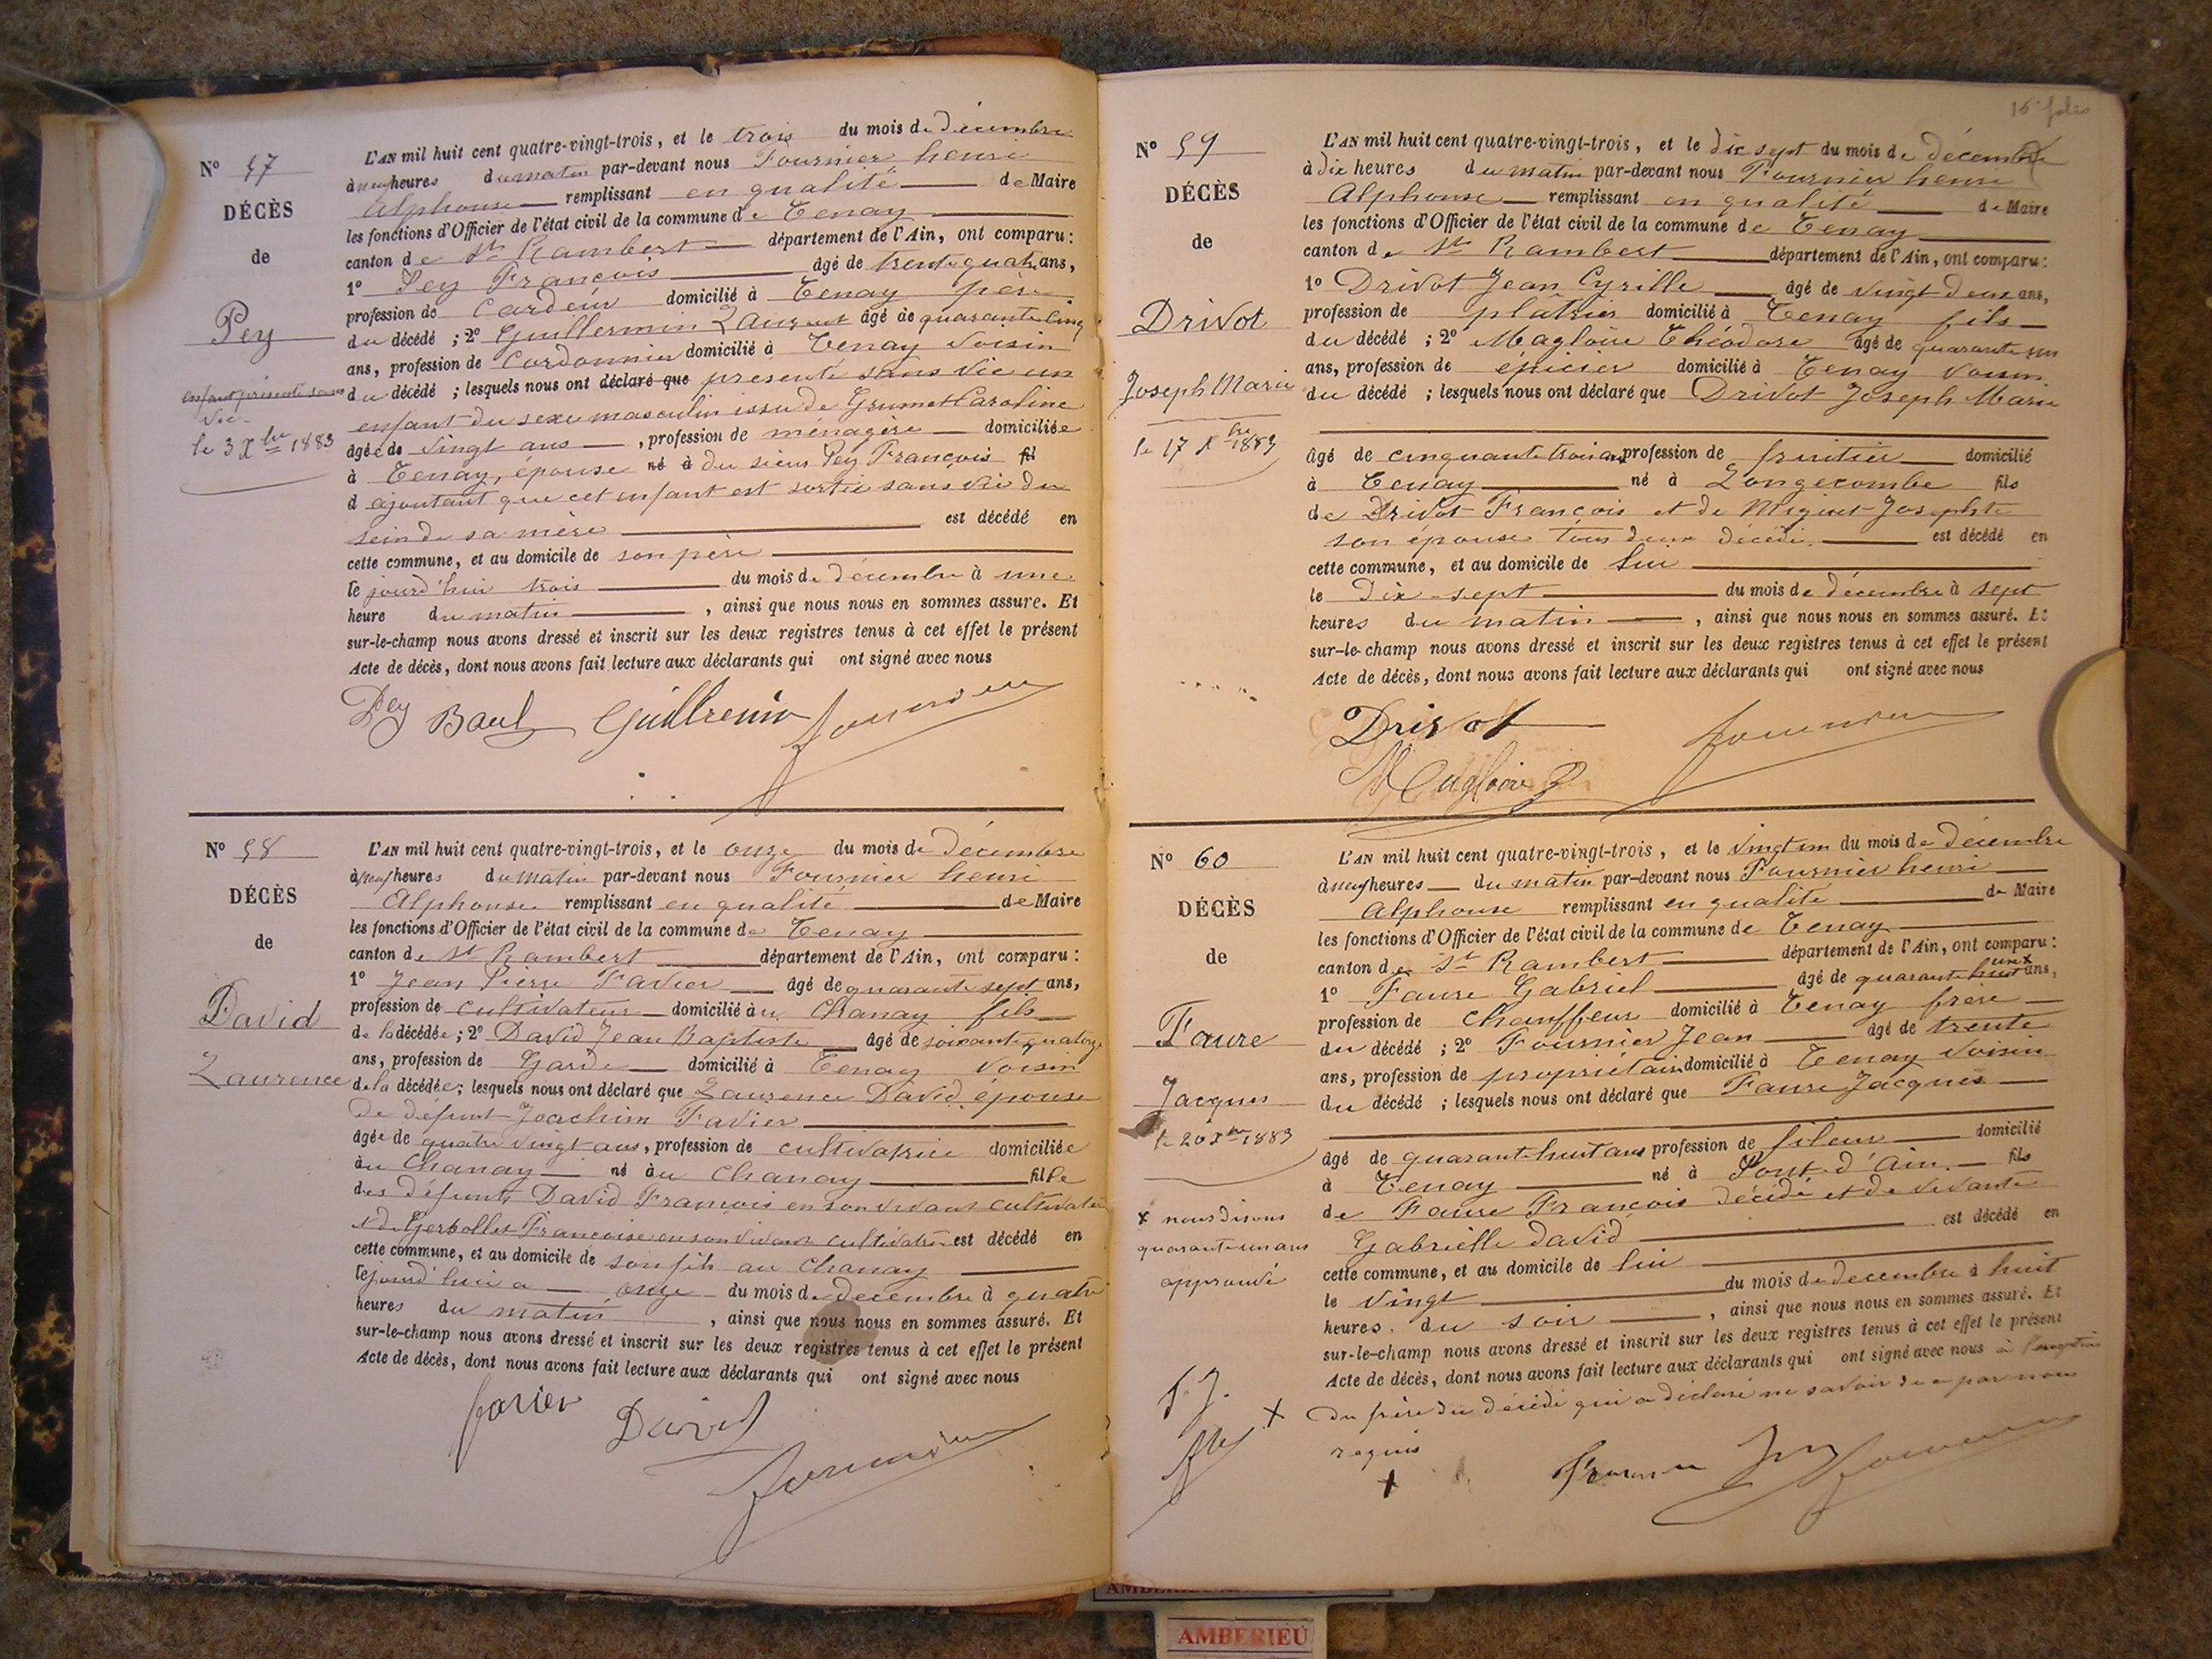 N° 57
DÉCÈS
de
Pey
enfant présenté sans
vie.
le 3 Xbre 1883
L'AN mil huit cent quatre-vingt-trois, et le trois du mois de décembre
à neuf heures du matin par-devant nous Fournier henri
Alphonse remplissant en qualité de Maire
les fonctions d'Officier de l'état civil de la commune de Tenay
canton de St Rambert département de l'Ain, ont comparu :
1° Pey François âgé de trente quatre ans,
profession de Cardeur domicilié à Tenay père
du décédé ; 2° Guillermin Laurent âgé de quarante cinq
ans, profession de Cordonnier domicilié à Tenay voisin
du décédé ; lesquels nous ont déclaré que presenté sans vie un
enfant du sexe masculin issu de Grumet Caroline
âgée de vingt ans , profession de menagère domiciliée
à Tenay, épouse né à du sieur Pey François fil
d ajoutant que cet enfant est sortie sans vie du
sein de sa mère est décédé en
cette commune, et au domicile de son père
le jourd'hui trois du mois de décembre à une
heure du matin , ainsi que nous nous en sommes assuré. Et
sur-le-champ nous avons dressé et inscrit sur les deux registres tenus à cet effet le présent
Acte de décès, dont nous avons fait lecture aux déclarants qui ont signé avec nous
Pey Guillremin fournier
N° 58
DÉCÈS
de
David
Laurence
L'AN mil huit cent quatre-vingt-trois, et le onze du mois de décembre
à neuf heures du matin par-devant nous Fournier henri
Alphonse remplissant en qualité de Maire
les fonctions d'Officier de l'état civil de la commune de Tenay
canton de St Rambert département de l'Ain, ont comparu :
1° Jean Pierre Favier âgé de quarante sept ans,
profession de cultivateur domicilié au Chanay fils
de la décédée ; 2° David Jean Baptiste âgé de soixante quatorze
ans, profession de Garde domicilié à Tenay voisin
de la décédée ; lesquels nous ont déclaré que Laurence David épouse
de défunt Joachim Favier
âgée de quatre vingt ans, profession de cultivatrice domiciliée
au Chanay né au Chanay fille
des défunts David François en son vivant cultivateur
et de Gerbollet Françoise en son vivant cultivatrice est décédé en
cette commune, et au domicile de son fils au Chanay
le jourd'hui a onze du mois de decembre à quatre
heures du matin , ainsi que nous nous en sommes assuré. Et
sur-le-champ nous avons dressé et inscrit sur les deux registres tenus à cet effet le présent
Acte de décès, dont nous avons fait lecture aux déclarants qui ont signé avec nous
favier David
fournier
16e folio
N° 59
DÉCÈS
de
Drivot
Joseph Marie
le 17 Xbre 1883
L'AN mil huit cent quatre-vingt-trois, et le dix sept du mois de décembre
à dix heures du matin par-devant nous Fournier henri
Alphonse remplissant en qualité de Maire
les fonctions d'Officier de l'état civil de la commune de Tenay
canton de St Rambert département de l'Ain, ont comparu :
1° Drivot Jean Cyrille âgé de vingt deux ans,
profession de plâtrier domicilié à Tenay fils
du décédé ; 2° Magloire Théodore âgé de quarante un
ans, profession de épicier domicilié à Tenay voisin
du décédé ; lesquels nous ont déclaré que Drivot Joseph Marie
âgé de cinquante trois ans profession de fruitier domicilié
à Tenay né à Longecombe fils
de Drivot François et de Miguet Josephte
son épouse tous deux décédés est décédé en
cette commune, et au domicile de lui
le dix-sept du mois de décembre à sept
heures du matin , ainsi que nous nous en sommes assuré. Et
sur-le-champ nous avons dressé et inscrit sur les deux registres tenus à cet effet le présent
Acte de décès, dont nous avons fait lecture aux déclarants qui ont signé avec nous
Drivot fournier
Magloire
N° 60
DÉCÈS
de
Faure
Jacques
le 20 Xbre 1883
x nous disons
quarante un ans
approuvé
L'AN mil huit cent quatre-vingt-trois, et le vingt un du mois de décembre
à neuf heures du matin par-devant nous Fournier henri
Alphonse remplissant en qualité de Maire
les fonctions d'Officier de l'état civil de la commune de Tenay
canton de St Rambert département de l'Ain, ont comparu :
un x
1° Faure Gabriel âgé de quarante huit ans,
profession de Chauffeur domicilié à Tenay frère
du décédé ; 2° Fournier Jean âgé de trente
ans, profession de propriétaire domicilié à Tenay voisin
du décédé ; lesquels nous ont déclaré que Faure Jacques
âgé de quarante huit ans profession de fileur domicilié
à Tenay né à Pont-d'Ain fils
de Faure François décédé et de vivante
Gabrielle David est décédé en
cette commune, et au domicile de lui
le vingt du mois de decembre à huit
heures du soir , ainsi que nous nous en sommes assuré. Et
sur-le-champ nous avons dressé et inscrit sur les deux registres tenus à cet effet le présent
Acte de décès, dont nous avons fait lecture aux déclarants qui ont signé avec nous à l'exception
x du frère du décédé qui a déclaré ne savoir de ce par nous
requis
x fournier
AMBERIEU